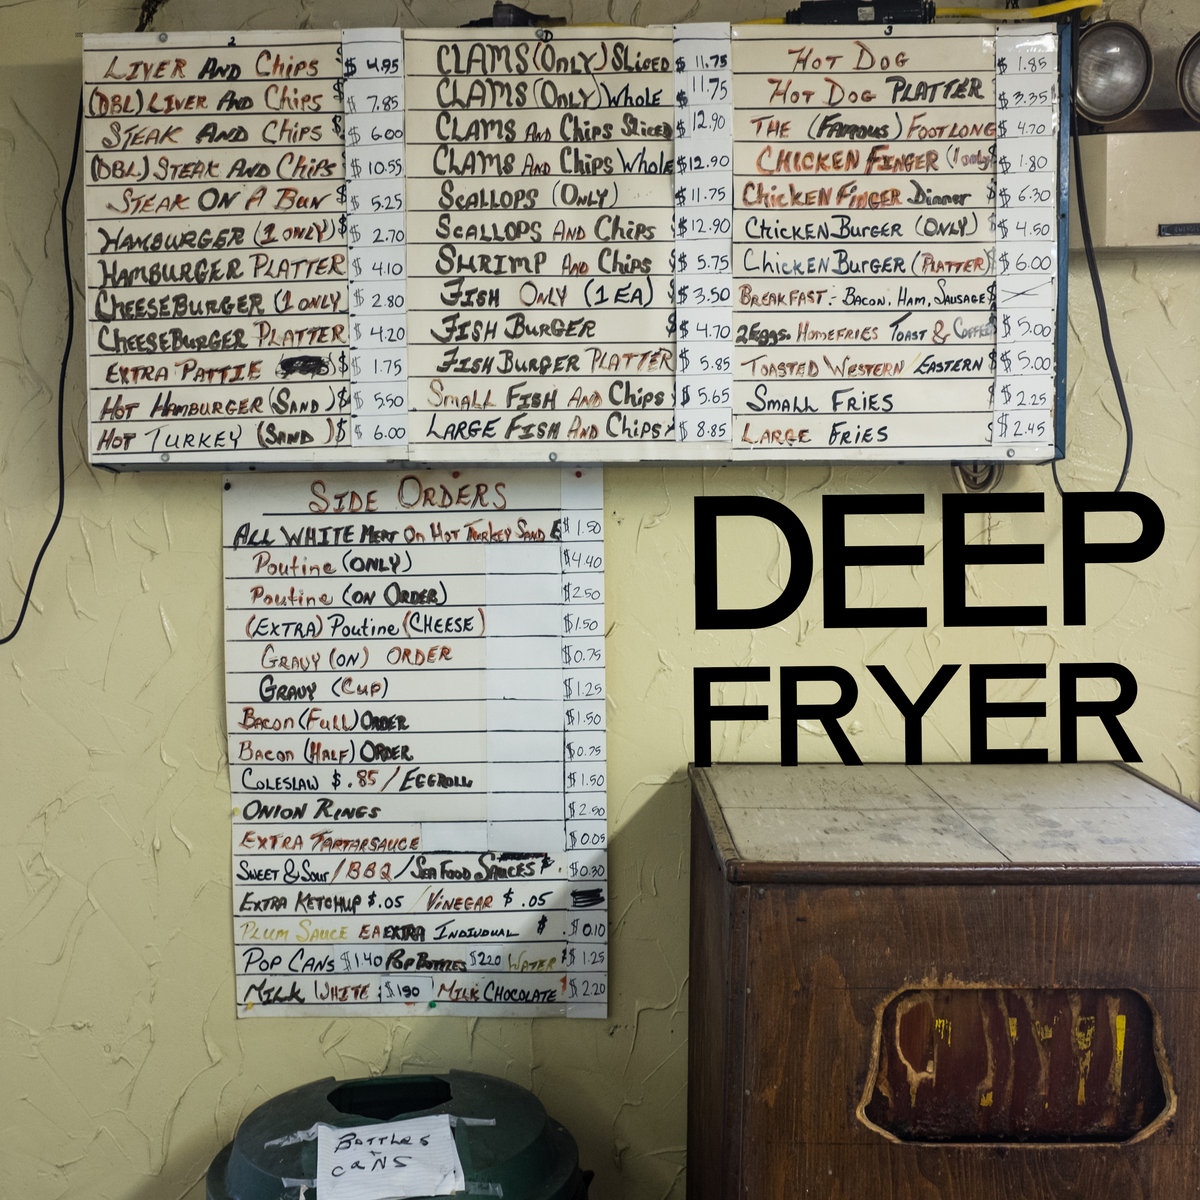 2
LIVER AND Chips $ $ 4.95
(DBL) LIVER AND Chips $ $ 7.85
STEAK AND Chips $ $ 6.00
(DBL) STEAK AND Chips $ $ 10.55
STEAK ON A BUN $ $ 5.25
HAMBURGER (1 ONLY) $ $ 2.70
HAMBURGER PLATTER $ 4.10
CHEESEBURGER (1 ONLY $ 2.80
CHEESEBURGER PLATTER $ 4.20
EXTRA PATTIE $ $ 1.75
HOT HAMBURGER (SAND) $ $ 5.50
HOT TURKEY (SAND) $ $ 6.00
CLAMS (ONLY) SLICED $ 11.75
CLAMS (ONLY) WHOLE $ 11.75
CLAMS AND Chips SLICED $ 12.90
CLAMS AND Chips WHOLE $ 12.90
SCALLOPS (ONLY) $ 11.75
SCALLOPS AND Chips $ 12.90
SHRIMP AND Chips $ $ 5.75
FISH ONLY (1 EA) $ $ 3.50
FISH BURGER $ $ 4.70
FISH BURGER PLATTER $ 5.85
SMALL FISH AND Chips $ 5.65
LARGE FISH AND Chips $ 8.85
3
HOT DOG $ 1.85
HOT DOG PLATTER $ 3.35
THE (FAMOUS) FOOTLONG $ 4.70
CHICKEN FINGER (1 only) $ 1.80
CHICKEN FINGER Dinner $ $ 6.30
CHICKEN BURGER (ONLY) $ 4.50
CHICKEN BURGER (PLATTER) $ 6.00
BREAKFAST: BACON, HAM, SAUSAGE $
2 Eggs. HOMEFRIES TOAST & COFFEE $ 5.00
TOASTED WESTERN / EASTERN $ $ 5.00
SMALL FRIES $ $ 2.25
LARGE FRIES $ $ 2.45
SIDE ORDERS
ALL WHITE MEAT ON HOT TURKEY SAND $ 1.50
Poutine (ONLY) $ 4.40
Poutine (ON ORDER) $ 2.50
(EXTRA) Poutine (CHEESE) $ 1.50
GRAVY (ON) ORDER $ 0.75
GRAVY (Cup) $ 1.25
BACON (FULL) ORDER $ 1.50
BACON (HALF) ORDER $ 0.75
COLESLAW $ .85 / EGGROLL $ 1.50
ONION RINGS $ 2.50
EXTRA TARTARSAUCE $ 0.05
SWEET & SOUR / BBQ / SEA FOOD SAUCES $ 0.30
EXTRA KETCHUP $ .05 / VINEGAR $ .05
PLUM SAUCE EA EXTRA INDIVIDUAL $ $ 0.10
POP CANS $ 1.40 POP BOTTLES $ 2.20 WATER $ $ 1.25
MILK WHITE $ 1.90 MILK CHOCOLATE $ 2.20
DEEP
FRYER
BOTTLES
+
CANS